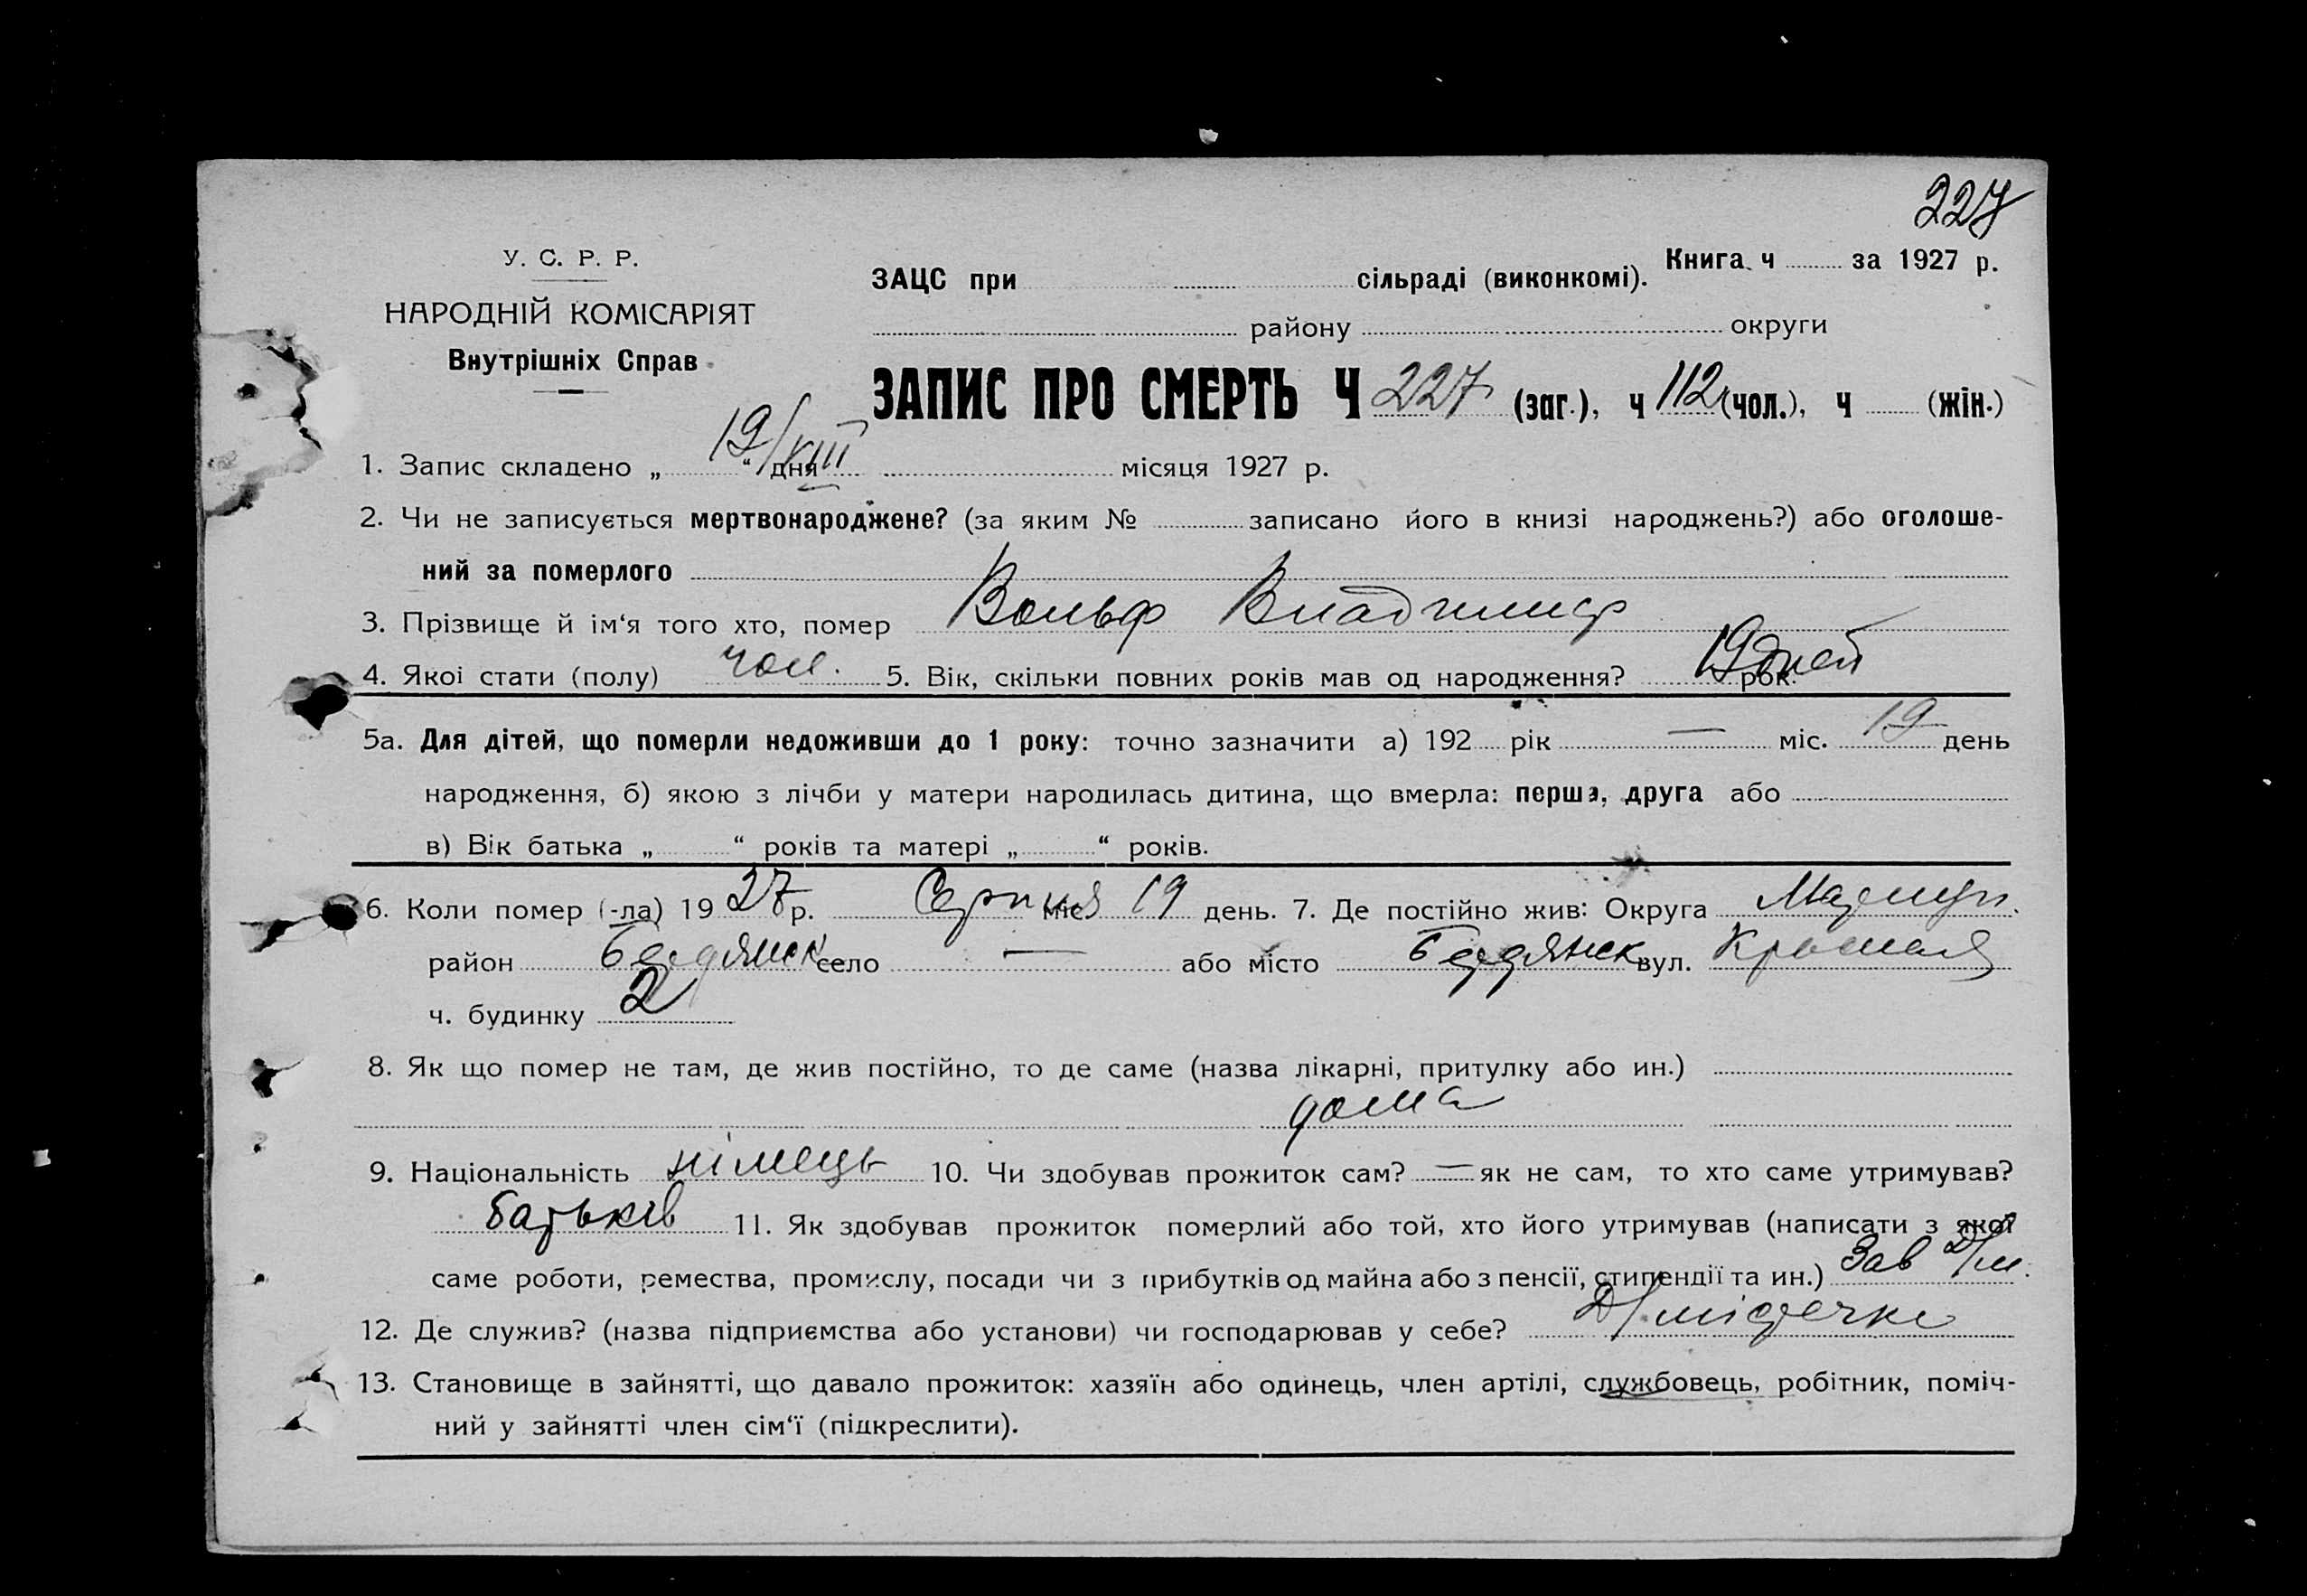 227
У. С. Р. Р.
НАРОДНІЙ КОМІСАРІЯТ
Внутрішніх Справ
Книга ч за 1927 р.
ЗАЦС при сільраді (виконкомі).
району округи
ЗАПИС ПРО СМЕРТЬ Ч 227 (заг.), ч 112 (чол.), ч (жін.)
1. Запис складено „ 19/VIII “ дня місяця 1927 р.
2. Чи не записується мертвонароджене? (за яким № записано його в книзі народжень?) або оголоше-
ний за померлого
3. Прізвище й ім‘я того хто, помер Вольф Владимир
4. Якоі стати (полу) чол. 5. Вік, скільки повних років мав од народження? 19 дней рок.
5а. Для дітей, що померли недоживши до 1 року: точно зазначити а) 192 рік — міс. 19 день
народження, б) якою з лічби у матери народилась дитина, що вмерла: перша, друга або
в) Вік батька „ “ років та матері „ “ років.
6. Коли помер (-ла) 1927 р. Серпня міс. 19 день. 7. Де постійно жив: Округа Маріуп.
район Бердянск село — або місто Бердянск вул.
ч. будинку 2
8. Як що помер не там, де жив постійно, то де саме (назва лікарні, притулку або ин.)
дома
9. Національність німець 10. Чи здобував прожиток сам? — як не сам, то хто саме утримував?
батьків 11. Як здобував прожиток померлий або той, хто його утримував (написати з якої
саме роботи, ремества, промислу, посади чи з прибутків од майна або з пенсії, стипендії та ин.) Зав Д/м.
12. Де служив? (назва підприємства або установи) чи господарював у себе? Д/містечко
13. Становище в зайнятті, що давало прожиток: хазяїн або одинець, член артілі, службовець, робітник, поміч-
ний у зайнятті член сім‘ї (підкреслити).